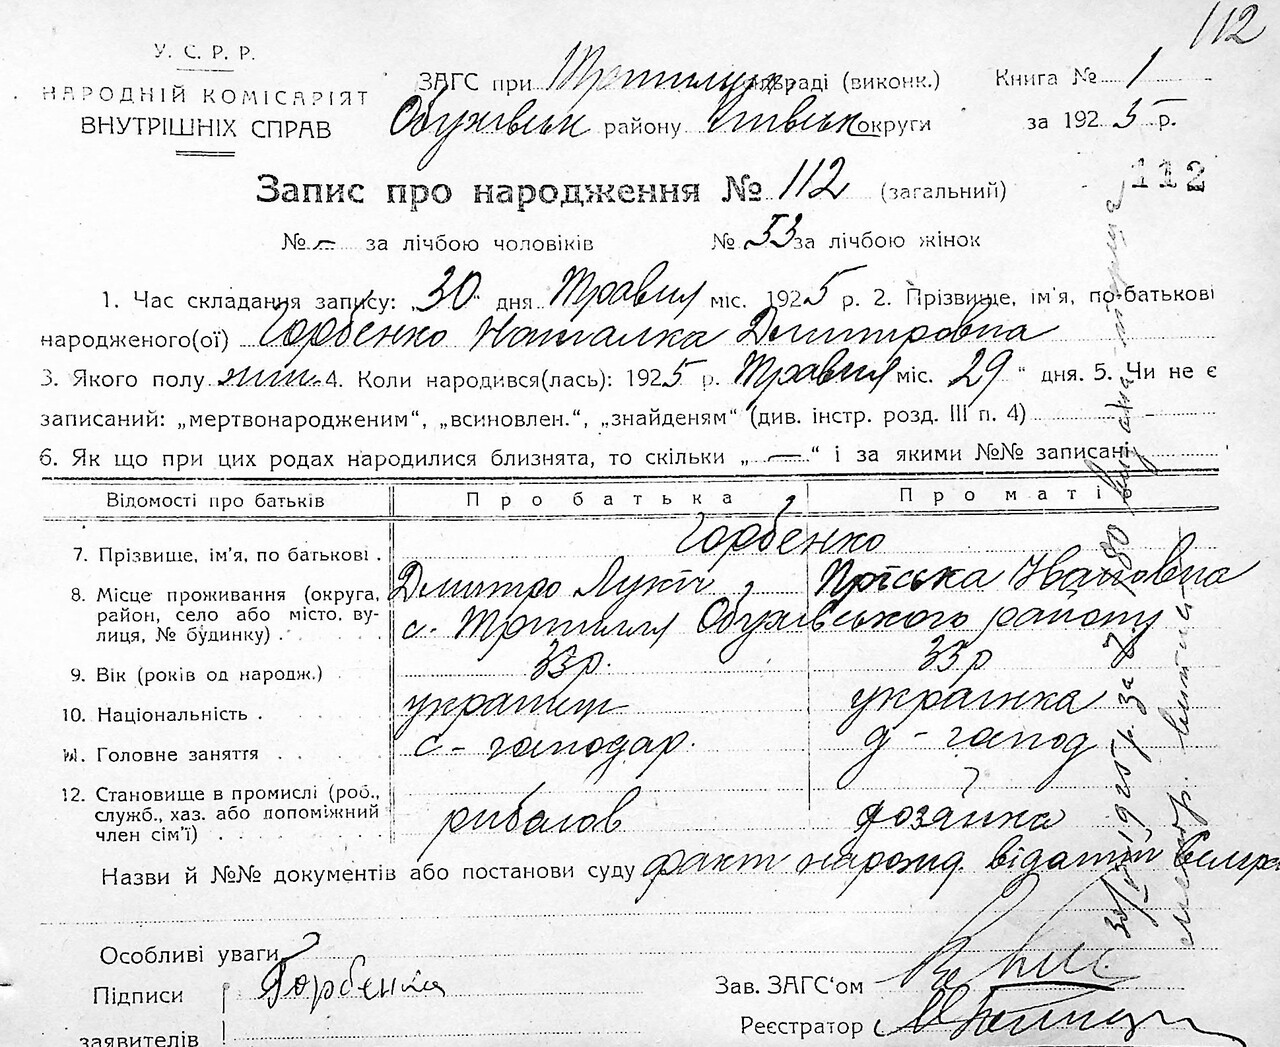 112
У. С. Р. Р.
НАРОДНІЙ КОМІСАРІЯТ
ВНУТРІШНІХ СПРАВ
ЗАГС при раді (виконк.) Книга № 1
Обухівськ району округи за 1925 р.
112
Запис про народження № 112 (загальний)
№ – за лічбою чоловіків № 53 за лічбою жінок
1. Час складання запису: „30“ дня Травня міс. 1925 р. 2. Прізвище, ім'я, по-батькові
народженого(ої) Горбенко Наталка Дмитровна
3. Якого полу жін. 4. Коли народився(лась): 1925 р. Травня міс. 29 “ дня. 5. Чи не є
записаний: „мертвонародженим“, „всиновлен.“, „знайденям“ (див. інстр. розд. III п. 4) -
6. Як що при цих родах народилися близнята, то скільки „ — “ і за якими №№ записані
Відомості про батьків Про батька Про маті
7. Прізвище, ім'я, по батькові . Горбенко
Дмитро Лукіч Пріська Івановна
8. Місце проживання (округа, район, село або місто, вулиця, № будинку) . с. Трипилля Обухівського району
9. Вік (років од народж.) . 33 р. 33 р
10. Національність . українець українка
11. Головне заняття . . . с-господар. д-господ
12. Становище в промислі (роб., служб., хаз. або допоміжний член сім'ї) . рибалов хозяйка
Назви й №№ документів або постанови суду факт народ.
Особливі уваги
Підписи Горбенко
заявителів
Зав. ЗАГС'ом
Реєстратор